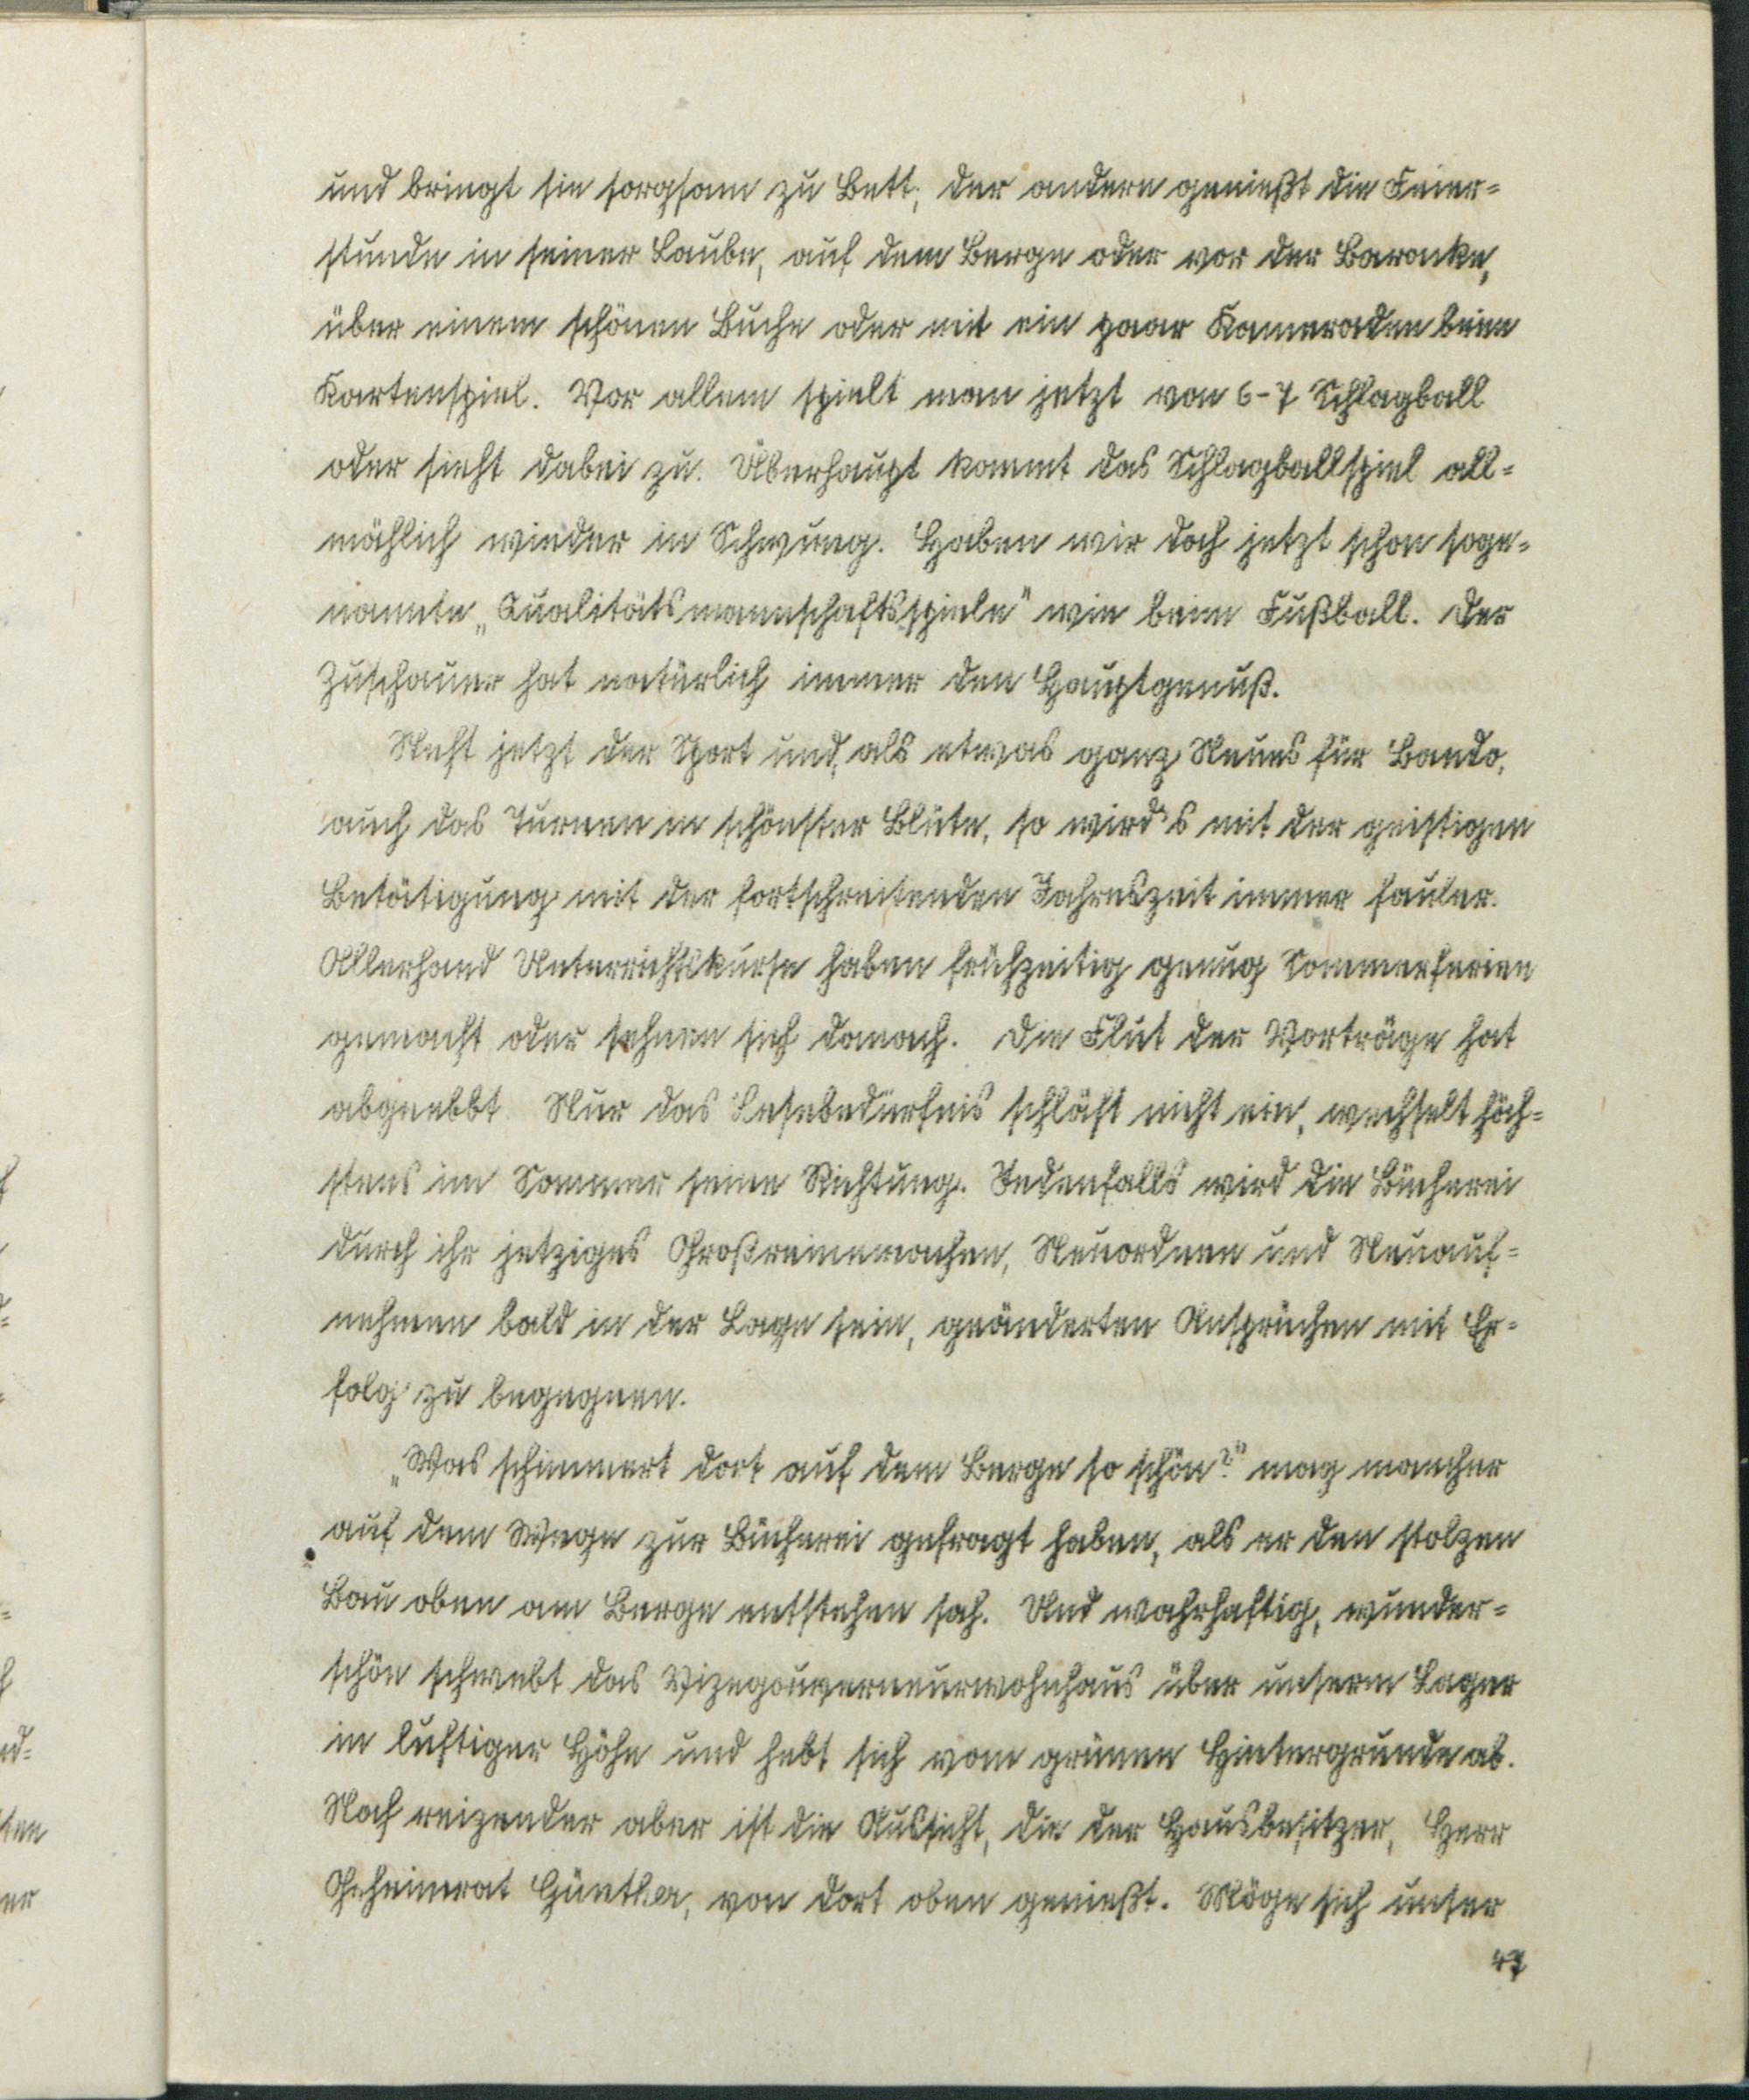 und bringt sie sorgsam zu Bett; der andere genießt die Feier=
stunde in seiner Laube, auf dem Berge oder vor der Baracke,
über einem schönen Buche oder mit ein paar Kameraden beim
Kartenspiel. Vor allem spielt man jetzt von 6-7 Schlagball
oder sieht dabei zu. Überhaupt kommt das Schlagballspiel all=
mählich wieder in Schwung. Haben wir doch jetzt schon soge=
nannte „Qualitätsmannschaftsspiele" wie beim Fußball. Der
Zuschauer hat natürlich immer den Hauptgenuß.
Steht jetzt der Sport und, als etwas ganz Neues für Bando,
auch das Turnen in schönster Blüte, so wird's mit der geistigen
Betätigung mit der fortschreitenden Jahreszeit immer fauler.
Allerhand Unterrichtskurse haben frühzeitig genug Sommerferien
gemacht oder sehnen sich danach. Die Flut der Vorträge hat
abgeebbt. Nur das Lesebedürfnis schläft nicht ein, wechselt höch=
stens im Sommer seine Richtung. Jedenfalls wird die Bücherei
durch ihr jetziges Großreinemachen, Neuordnen und Neuauf=
nehmen bald in der Lage sein, geänderten Ansprüchen mit Er=
folg zu begegnen.
„Was schimmert dort auf dem Berge so schön?" mag mancher
auf dem Wege zur Bücherei gefragt haben, als er den stolzen
Bau oben am Berge entstehen sah. Und wahrhaftig, wunder=
schön schwebt das Vizegouverneurwohnhaus über unserm Lager
in luftiger Höhe und hebt sich vom grünen Hintergrunde ab.
Noch reizender aber ist die Aussicht, die der Hausbesitzer, Herr
Geheimrat Günther, von dort oben genießt. Möge sich unser
47